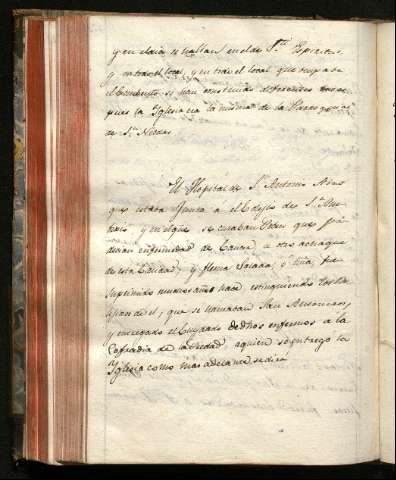 y en el dia se hallan en el de Sn.
y en todo el local, y en todo el local que ocupaba
el Combento, se han construido diferentes casas
pues la Yglesia es la misma de la Parroquia
de Sn. Nicolas

El Hospital de Sn. Antonio Abad
que estaba Junto a el Colejio de Sn.
y en el que se curaban Pobres que pa
decian enfermedad de Cancer, u otro achaque
de esta Calidad, y flema Salada, y tiña, fue
suprimido muchos años hace, estinguiendo los
de el, que se llamaban San Antonianos,
y encargado el Cuydado de dhos enfermos a la
Cofradia de la Piedad, a quien se entrego la
Yglesia como mas adelante se dira